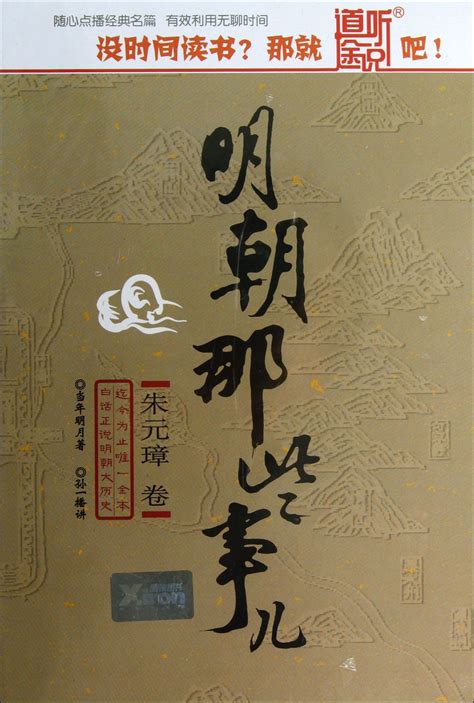 随心点播经典名篇 有效利用无聊时间
没时间读书？那就道听途说®吧！
明朝那些事儿
朱元璋 卷
迄今为止唯一全本
白话正说明朝大历史
◎当年明月著 ◎孙一播讲